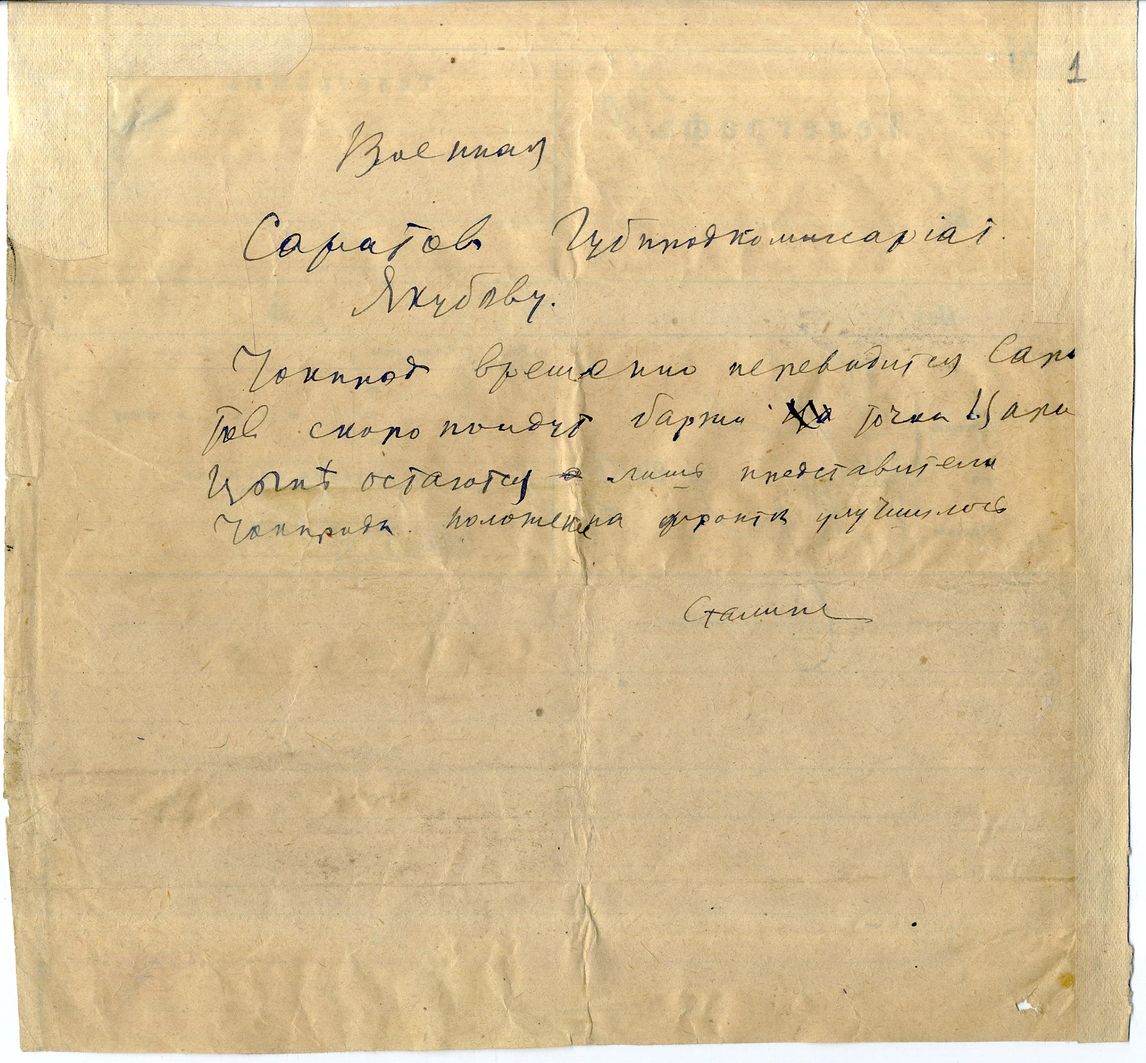 1
Военная
Саратов Губпродкомиссаріат.
Якубову.
Чокпрод временно переводится Сара
тов скоро поидут баржи точка Цари
цынѣ остаются лишь представители
Чокпрода положение на фронте улучшилось
Сталин